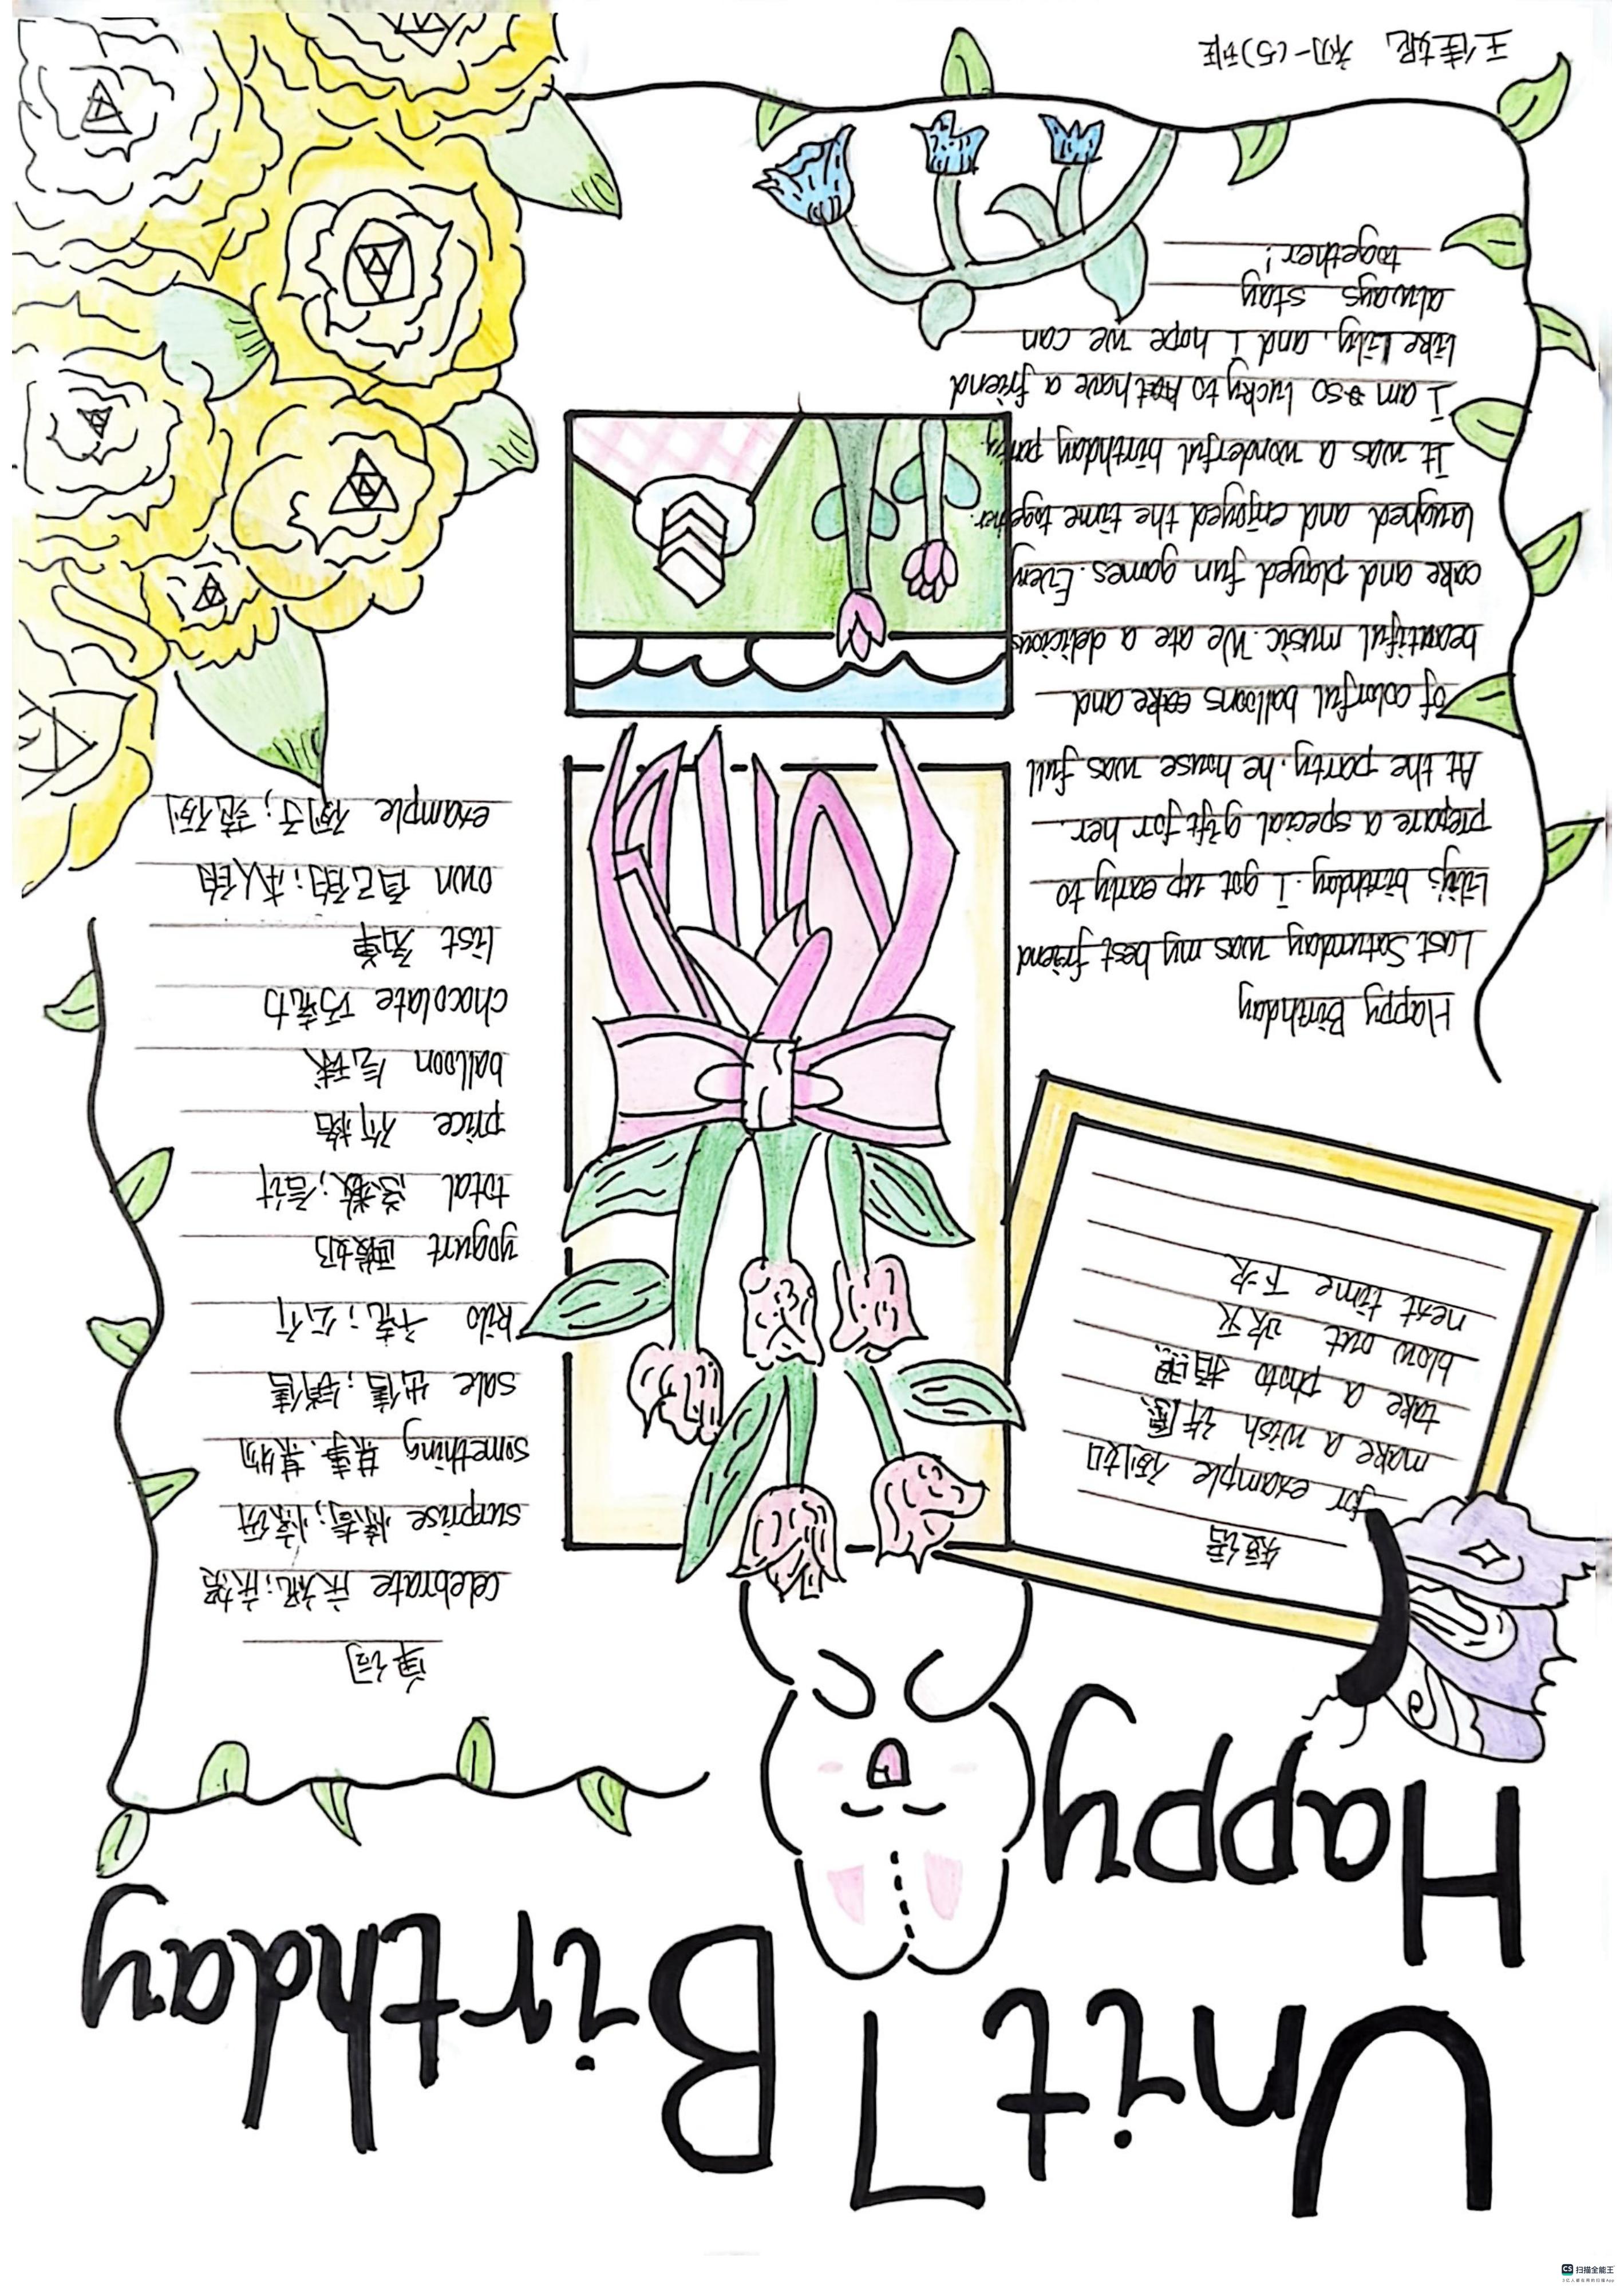 Unit 7
Happy
Birthday
短语
for example 例如
make a wish 许愿
take a photo 拍照
blow out 吹灭
next time 下次
单词
celebrate 庆祝;庆贺
surprise 惊奇;惊讶
something 某事.某物
sale 出售;销售
kilo 千克;公斤
yogurt 酸奶
total 总数;合计
price 价格
balloon 气球
chocolate 巧克力
list 名单
own 自己的;本人的
example 例子;范例
Happy Birthday
Last Saturday was my best friend
Lily's birthday. I got up early to
prepare a special gift for her.
At the party, he house was full
of colorful balloons and
beautiful music. We ate a delicious
cake and played fun games.
laughed and enjoyed the time together.
It was a wonderful birthday party.
I am so lucky to have a friend
like Lily, and I hope we can
always stay
together!
王佳妮 初一(5)班
CS 扫描全能王
3亿人都在用的扫描App